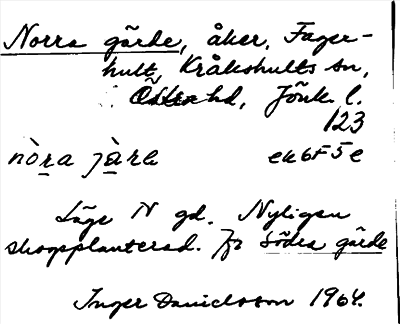 Norra gärde, åker, Fager-
hult, Kråkshults sn,
Östra hd, Jönk. l.
123
nòra jàrə ek 6F 5e
Läge N gd. Nyligen
skogsplanterad. Jfr Södra gärde
Inger Danielsson 1964.